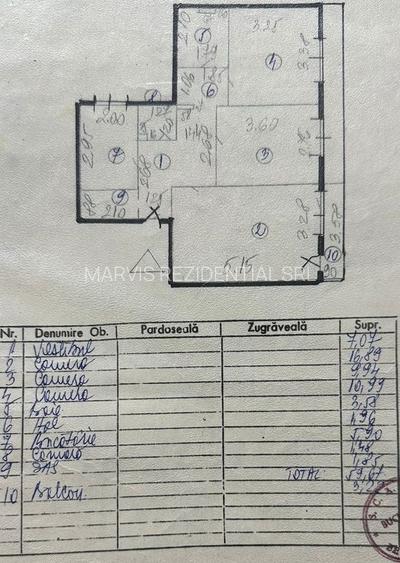 2.10
5
3.25
4
3.38
1.06
6
8
2.00
3.60
2.95
7
1
2.68
2.68
3
2.75
9
2.10
2
3.28
3.58
5.15
10
90
MARVIS REZIDENTIAL SRL
Nr. Denumire Ob. Pardoseală Zugrăveală Supr.
1 Vestibul 7,07
2 Camera 16,89
3 Camera 9,94
4 Camera 10,99
5 Baie 3,58
6 Hol 1,96
7 Bucătărie 5,90
8 Cămară 1,48
9 SAS 1,85
TOTAL 59,67
10 Balcon 3,22